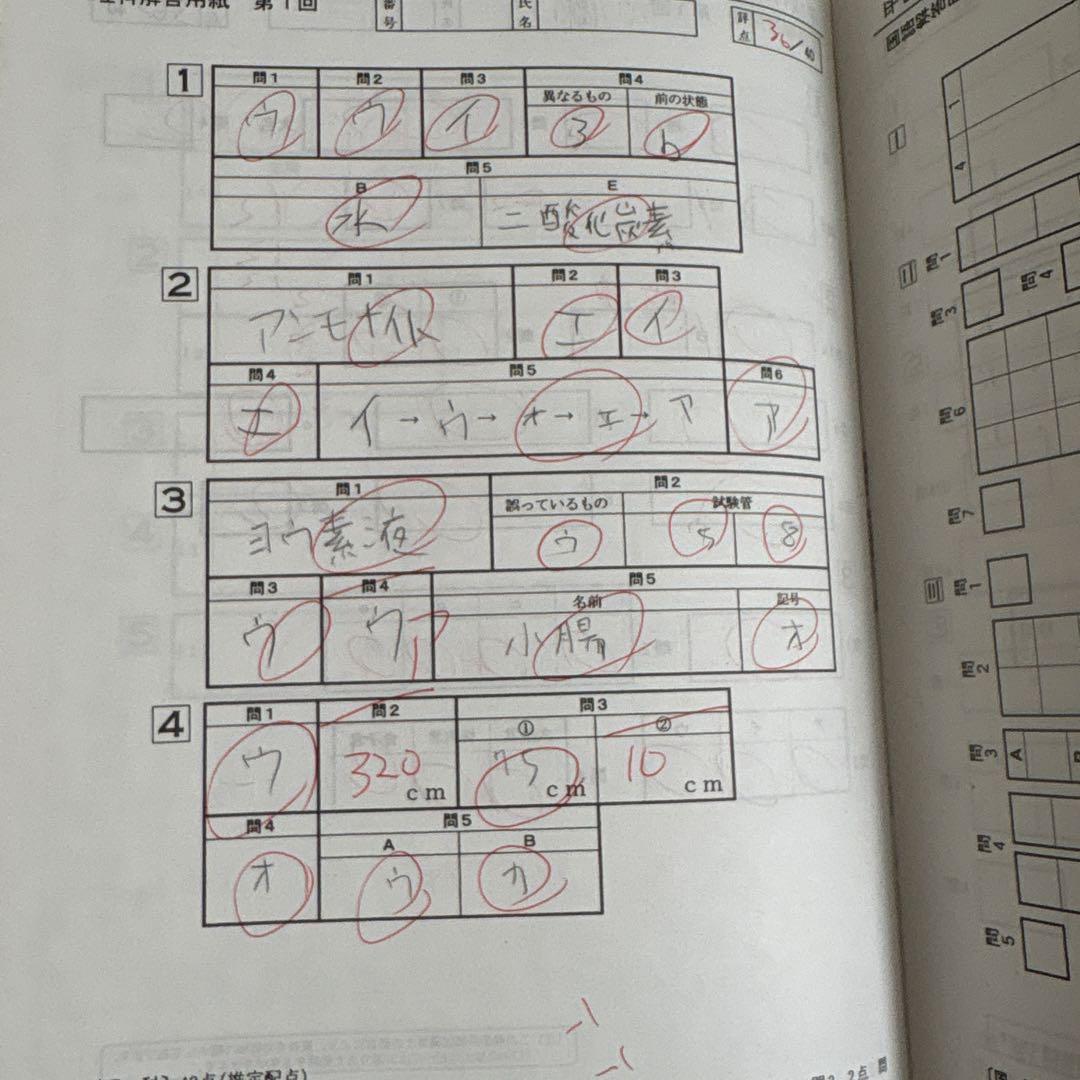 理科解答用紙 第1回
番号
氏名
評点 36/40
1
問1 問2 問3 問4
異なるもの 前の状態
ウ ウ イ 3 b
問5
B E
水 二酸化炭素
2
問1 問2 問3
アンモナイト エ イ
問4 問5 問6
エ イ→ウ→オ→エ→ア ア
3
問1 問2
誤っているもの 試験管
ヨウ素液 ウ 5 8
問3 問4 問5
名前 記号
ウ ウ ア 小腸 オ
4
問1 問2 問3
① ②
ウ 320 cm 75 cm 10 cm
問4 問5
A B
オ ウ カ
-1
-1
40点(推定配点)
2点
問
一
1
4
二
問1
問3
問4
問6
問7
三
問1
問2
問3
A
B
問4
問5